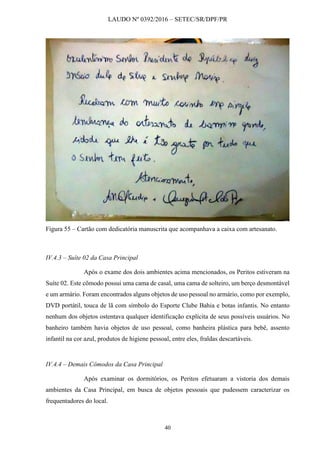 LAUDO Nº 0392/2016 – SETEC/SR/DPF/PR
Excelentíssimo Senhor Presidente da República Luiz
Inácio Lula da Silva e Senhora Marisa.
Recebam com muito carinho essa singela
lembrança do artesanato de
cidade que lhe é tão grata por tudo que
o Senhor tem feito.
Atenciosamente,
Figura 55 – Cartão com dedicatória manuscrita que acompanhava a caixa com artesanato.
IV.4.3 – Suíte 02 da Casa Principal
Após o exame dos dois ambientes acima mencionados, os Peritos estiveram na
Suíte 02. Este cômodo possui uma cama de casal, uma cama de solteiro, um berço desmontável
e um armário. Foram encontrados alguns objetos de uso pessoal no armário, como por exemplo,
DVD portátil, touca de lã com símbolo do Esporte Clube Bahia e botas infantis. No entanto
nenhum dos objetos ostentava qualquer identificação explícita de seus possíveis usuários. No
banheiro também havia objetos de uso pessoal, como banheira plástica para bebê, assento
infantil na cor azul, produtos de higiene pessoal, entre eles, fraldas descartáveis.
IV.4.4 – Demais Cômodos da Casa Principal
Após examinar os dormitórios, os Peritos efetuaram a vistoria dos demais
ambientes da Casa Principal, em busca de objetos pessoais que pudessem caracterizar os
frequentadores do local.
40